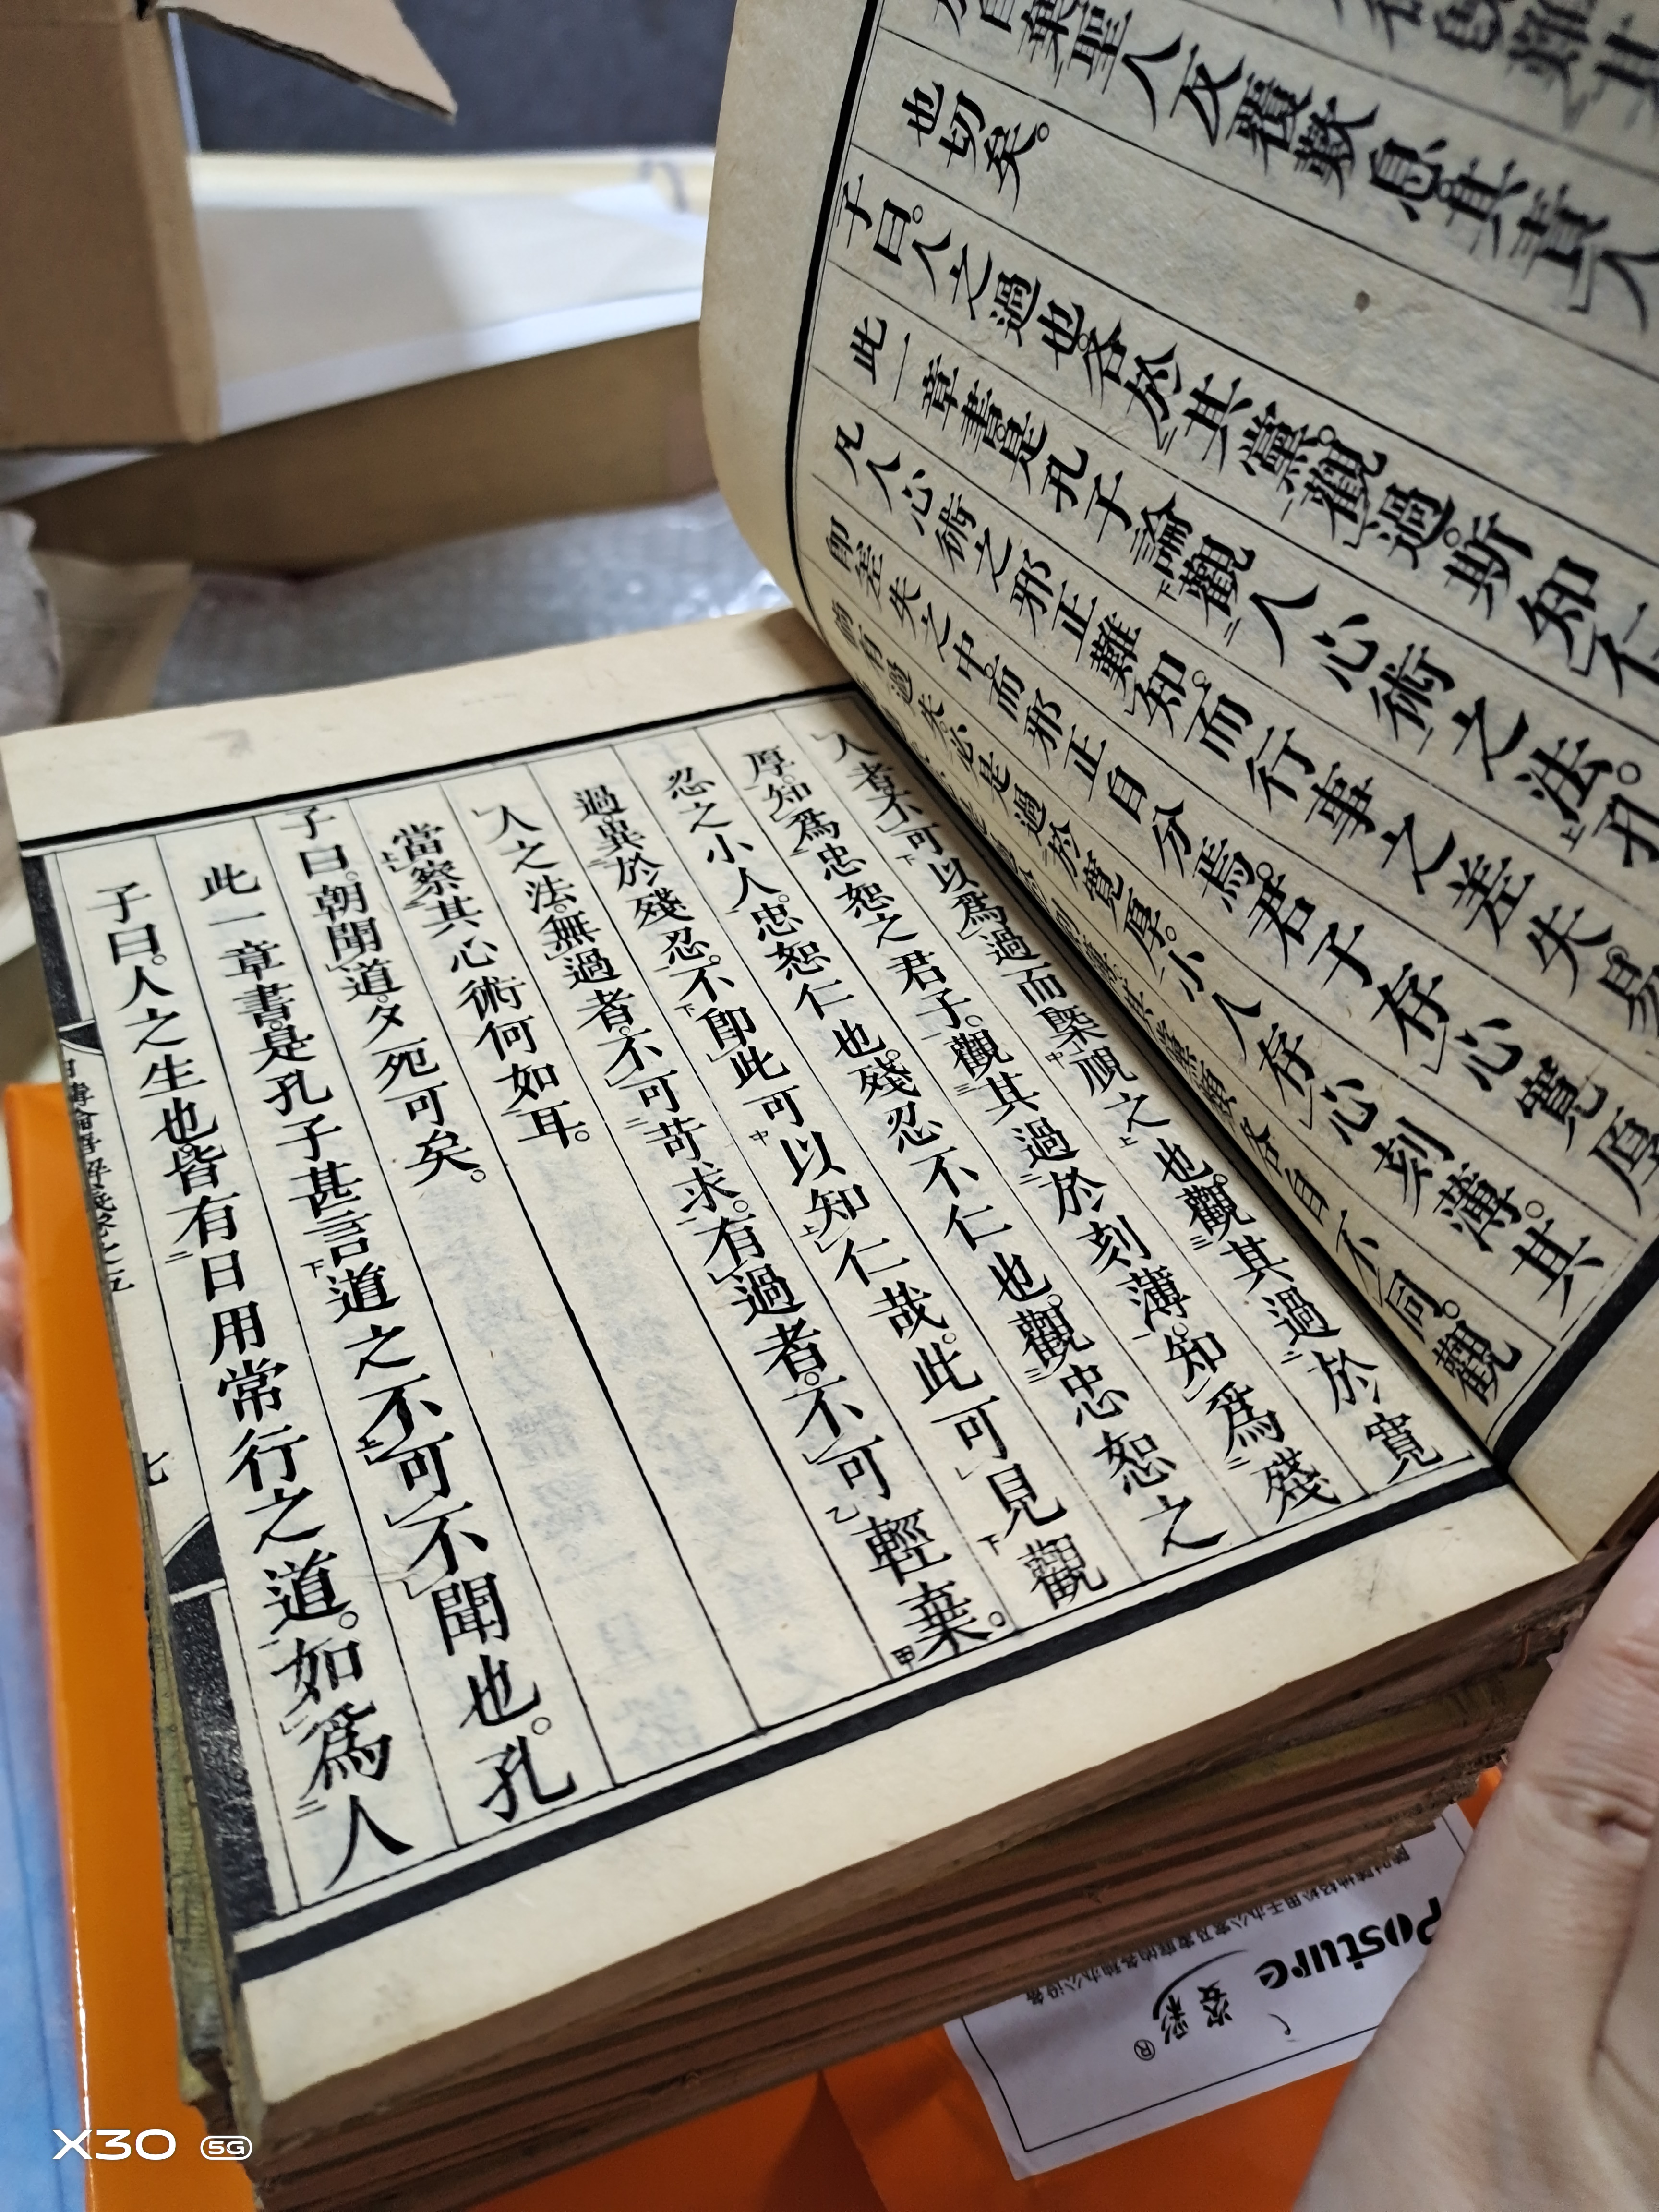 聖人反覆歎息其責人
也切矣。
子曰。人之過也。各於其黨。觀過。斯知仁
此一章書。是孔子論觀人心術之法。孔
凡人心術之邪正難知。而行事之差失。易
即差失之中。而邪正自分焉。君子存心寬厚
偶有過失。必是過於寬厚。小人存心刻薄。其
各自不同。觀
人者。不可以爲過而槩視之也。觀其過於寬
厚。知爲忠恕之君子。觀其過於刻薄。知爲殘
忍之小人。忠恕仁也。殘忍不仁也。觀忠恕之
過。異於殘忍。不即此可以知仁哉。此可見觀
人之法。無過者。不可苛求。有過者。不可輕棄。
當察其心術何如耳。
子曰。朝聞道。夕死可矣。
此一章書。是孔子甚言道之不可不聞也。孔
子曰。人之生也皆有日用常行之道。如爲人
七
Posture
姿彩®
X30 5G